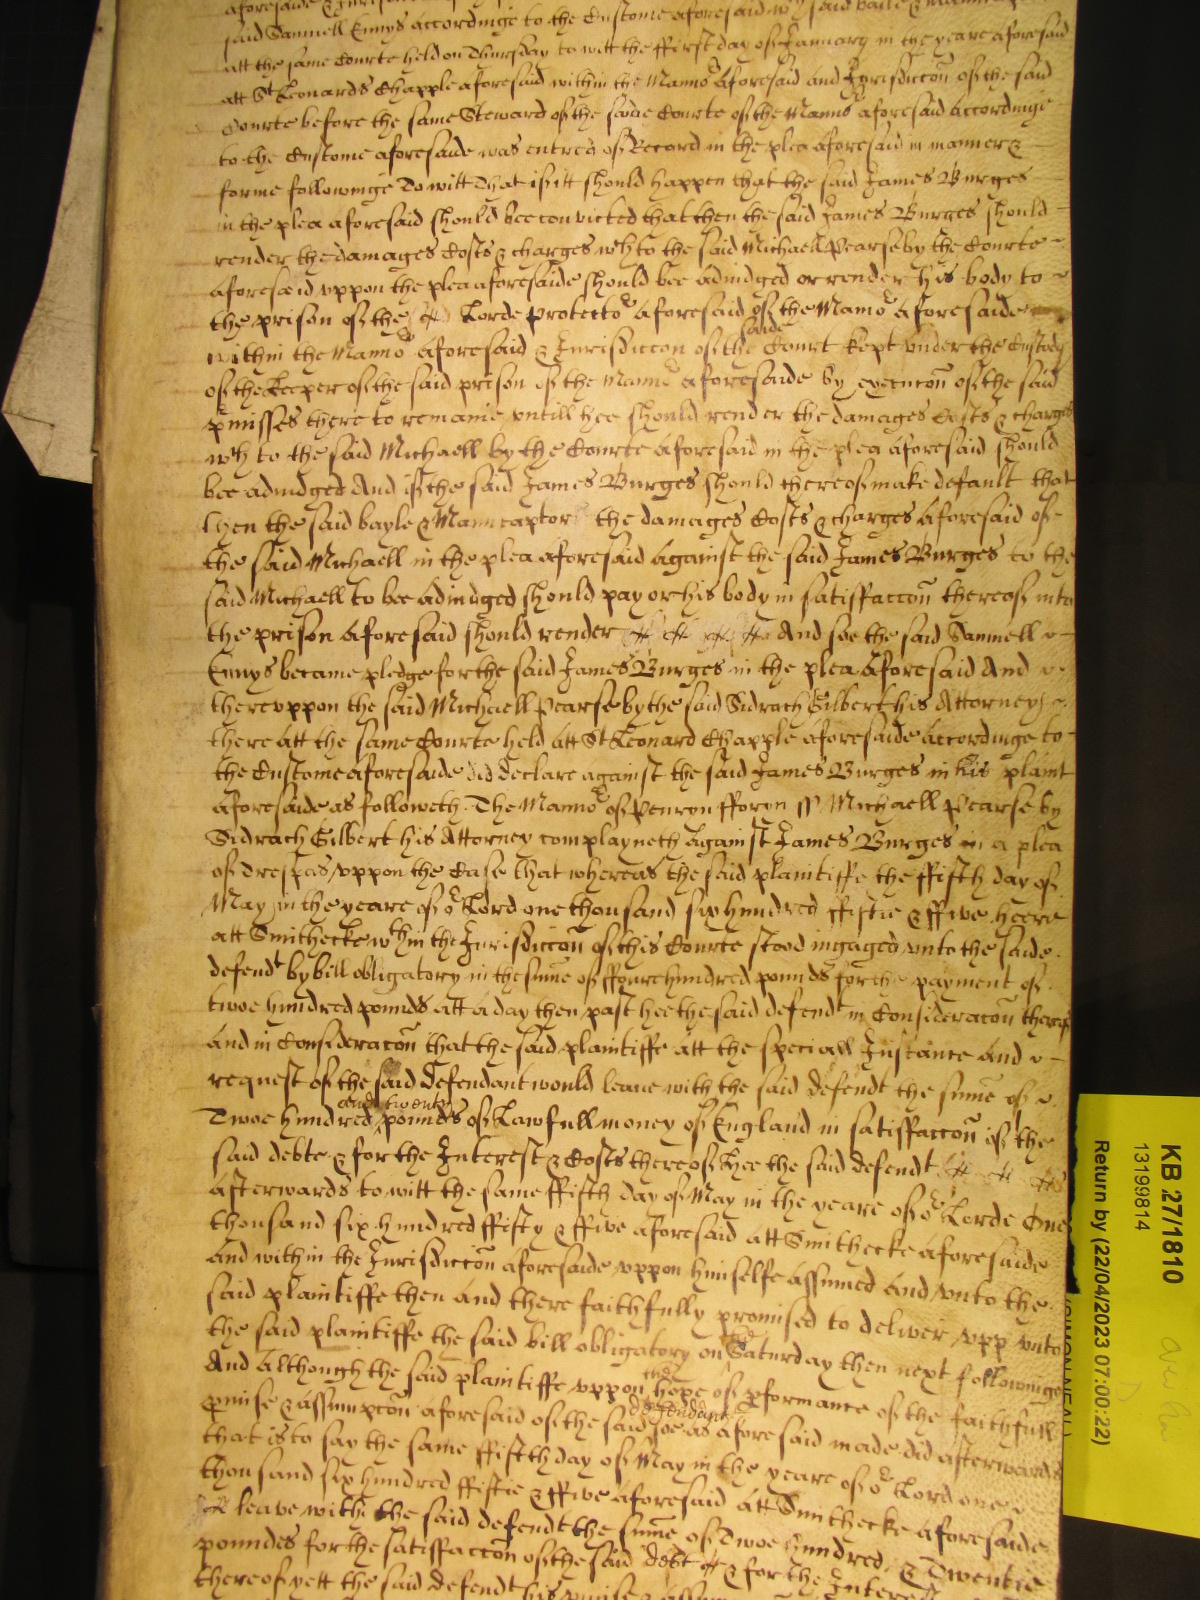 said Samuell Ennys accordinge to the Custome aforesaid
att the same Courte held on Thursday to witt the ffirst day of January in the yeare aforesaid
att St Leonards Chapple aforesaid within the Manno^r aforesaid and Jurisdiccōn of the said
Courte before the same Steward of the same Courte of the Manno^r aforesaid accordinge
to the Custome aforesaide was entred of Record in the plea aforesaid in manner &
forme followinge To witt That if itt should happen that the said James Burges
in the plea aforesaid should bee convicted that then the said James Burges should
render the damages Costs & charges w^ch to the said Michaell Pearse by the Courte
aforesaid vppon the plea aforesaide should bee adiudged or render his body to
the prison of the Lorde Protecto^r aforesaid of the Manno^r aforesaide
within the Manno^r aforesaid & Jurisdiccōn of the saide Court kept vnder the Custody
of the Keeper of the said prison of the Manno^r aforesaide by execucōn of the said
pmisses there to remaine vntill hee should render the damages Costs & charges
w^ch to the said Michaell by the Courte aforesaid in the plea aforesaid should
bee adiudged And if the said James Burges should thereof make default that
then the said bayle & Mainecaptor the damages Costs & charges aforesaid of
the said Michaell in the plea aforesaid against the said James Burges to the
said Michaell to bee adiudged should pay or his body in satisfaccōn thereof into
the prison aforesaid should render And soe the said Samuell
Ennys became pledge for the said James Burges in the plea aforesaid And
therevppon the said Michaell Pearse by the said Sidrach Gilbert his Attorney
there att the same Courte held att St Leonard Chapple aforesaide accordinge to
the Custome aforesaide did declare against the said James Burges in his plaint
aforesaide as followeth The Manno^r of Penryn fforyn ss Michaell Pearse by
Sidrach Gilbert his Attorney complayneth against James Burges in a plea
of Trespas vppon the Case that whereas the said plaintiffe the ffifth day of
May in the yeare of o^r Lord one thousand six hundred ffiftie & ffive heere
att Smithecke w^thin the Jurisdiccōn of this Courte stood ingaged vnto the saide
defend^t by bill obligatory in the sume of ffoure hundred pounds for the payment of
twoe hundred pounds att a day then past hee the said defend^t in Consideracōn thereof
and in Consideracōn that the said plaintiffe att the speciall Instance and
request of the said defendant would leave with the said defend^t the sume of
Twoe hundred and twenty pounds of Lawfull money of England in satisfaccōn of the
said debte & for the Interest & Costs thereof hee the said defend^t
afterwards to witt the same ffifth day of May in the yeare of o^r Lorde One
thousand six hundred ffifty & ffive aforesaid att Smithecke aforesaide
and within the Jurisdiccōn aforesaide vppon himselfe assumed and vnto the
said plaintiffe then and there faithfully promised to deliver vpp vnto
the said plaintiffe the said bill obligatory on the Saturday then next followinge
And Although the said plaintiffe vppon the hope of pformance of the faithfull
pmise & assumpcōn aforesaid of the said defendant soe as aforesaid made did afterwards
that is to say the same ffifth day of May in the yeare of o^r Lord one
thousand six hundred ffiftie & ffive aforesaid att Smithecke aforesaide
leave with the said defend^t the sume of Twoe hundred & Twentie
poundes for the satisfaccōn of the said debt & for the Interest
thereof yett the said defend^t his pmise &
KB 27/1810
13199814
Return by (22/04/2023 07:00:22)
(SIMON NEAL)